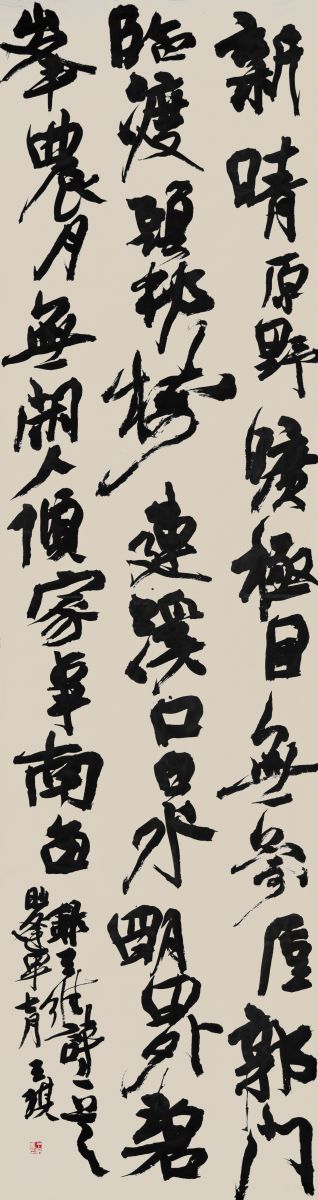 新晴原野曠極目無氛垢郭門
臨渡頭邨樹連溪口白水明田外碧
峯農月無閑人傾家事南亩
錄王維詩一首
王琪